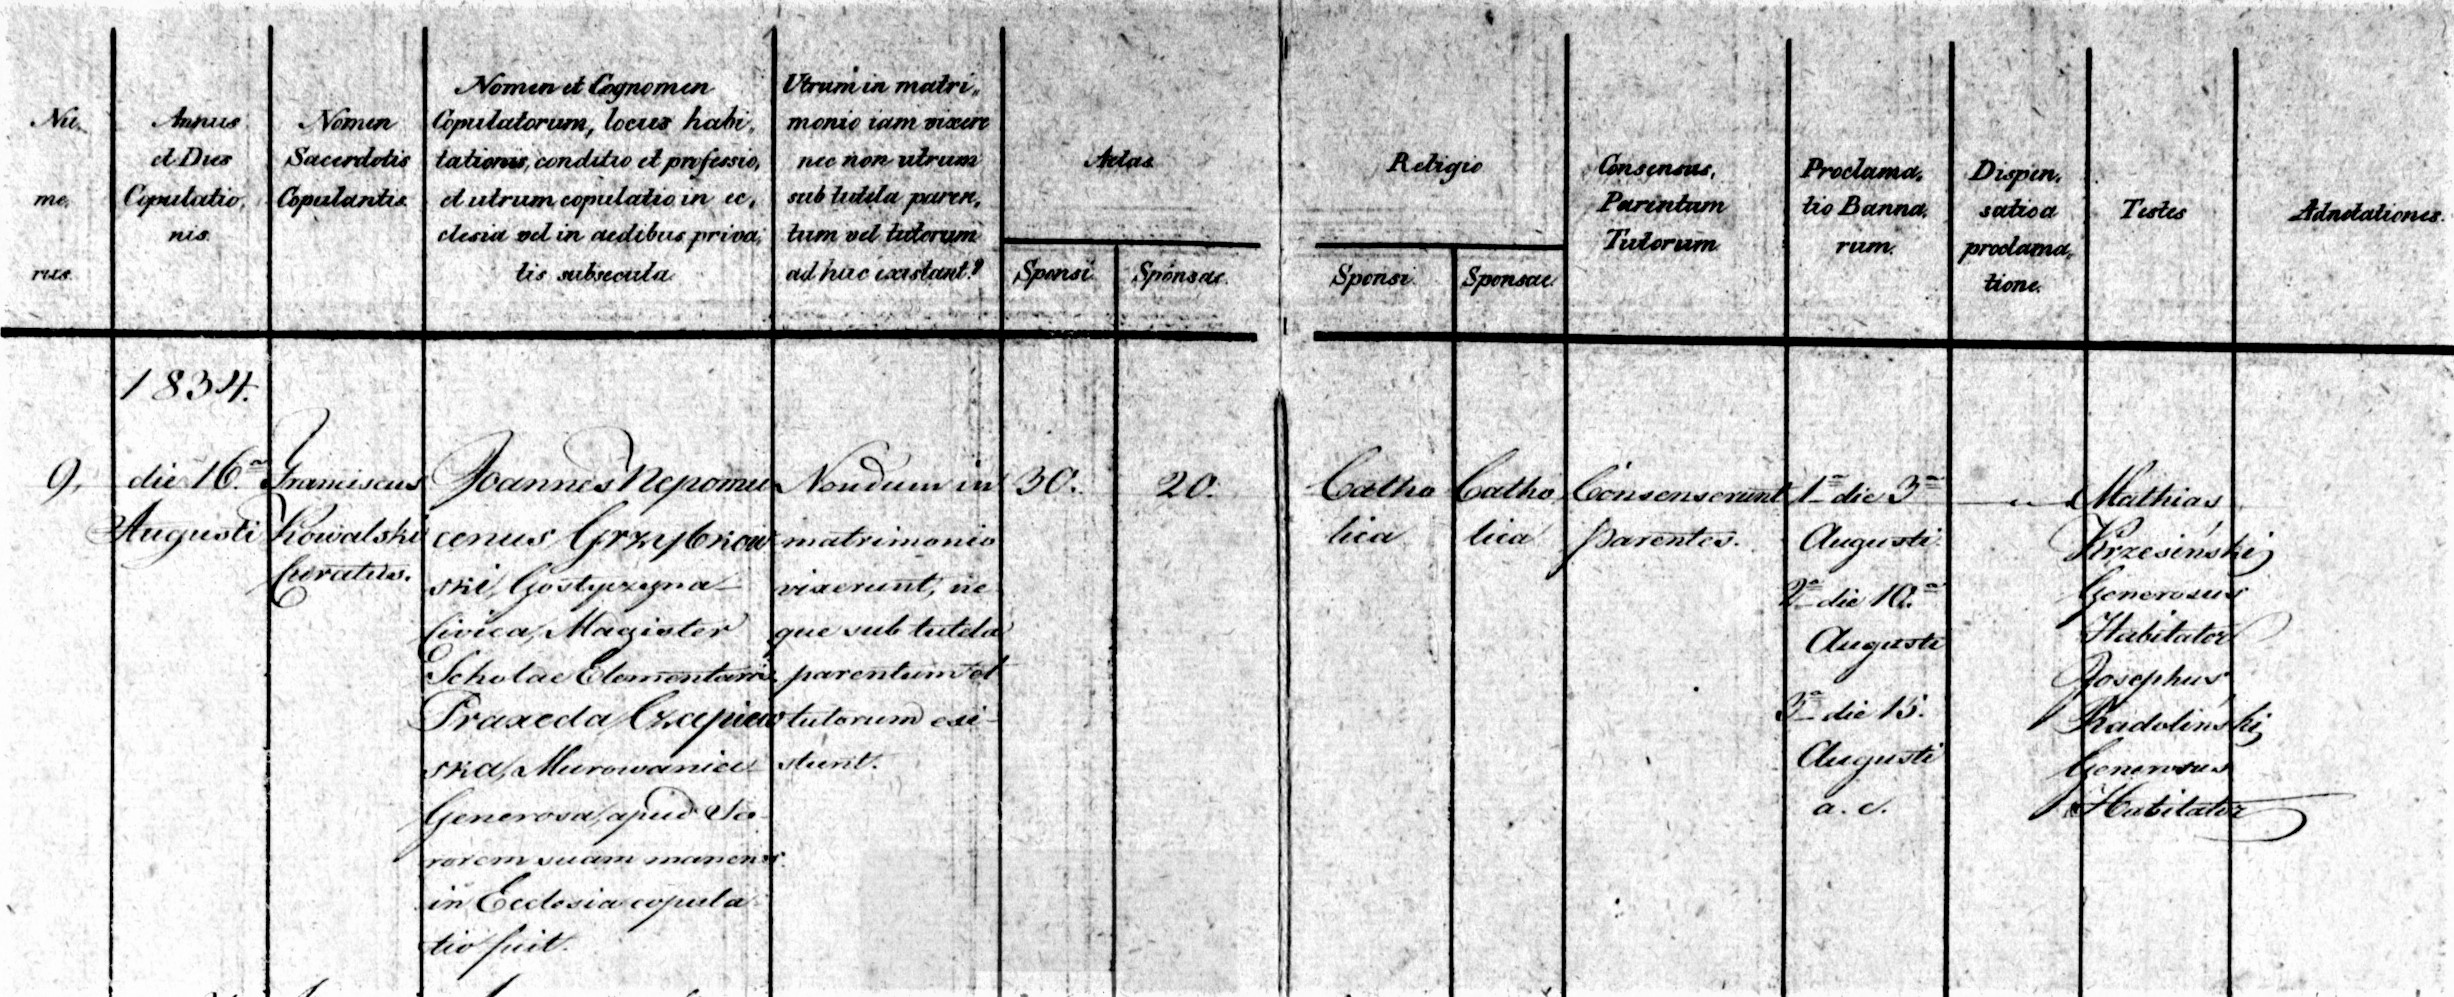 Nu-
me-
rus.
Annus
et Dies
Copulatio-
nis.
Nomen
Sacerdotis
Copulantis.
Nomen et Cognomen
Copulatorum, locus habi-
tationis, conditio et professio,
et utrum copulatio in ec-
clesia vel in aedibus priva-
tis subsecuta
Utrum in matri-
monio iam vixere
nec non utrum
sub tutela paren-
tum vel tutorum
ad huc existant?
Aetas
Sponsi
Sponsae.
Religio
Sponsi
Sponsae
Consensus,
Parentum
Tutorum
Proclama-
tio Banna-
rum.
Dispen-
satio a
proclama-
tione.
Testes
Adnotationes.
1834.
9.
die 16.ª
Augusti
Franciscus
Kowalski
Curatus.
Joannes Nepomu
cenus Grzybkow
ski, Gostyczyna
Civica, Magister
Scholae Elementaris
Praxeda Czapiew
ska, Murowaniec
Generosa, apud So-
rorem suam manens.
in Ecclesia copula
tio fuit.
Nondum in
matrimonio
vixerunt, ne
que sub tutela
parentum et
tutorum exi-
stunt.
30.
20.
Catho
lica
Catho
lica
Consenserunt
parentes.
1ª die 3ª
Augusti.
2ª die 10.ª
Augusti
3ª die 15.
Augusti
a. c.
Mathias
Krzesiński
Generosus
Habitator
Josephus
Radoliński
Generosus
Habitator